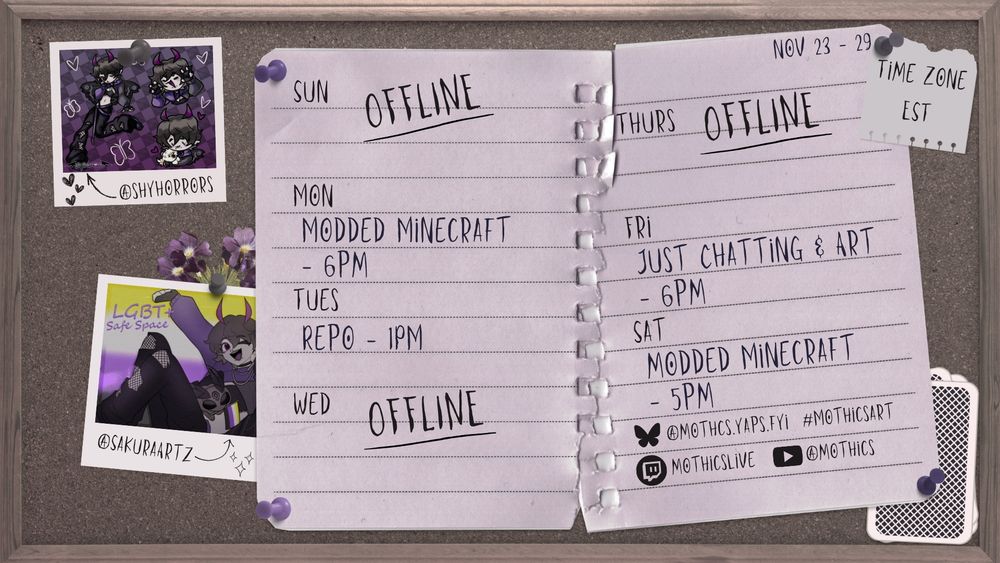 @SHYHORRORS
LGBT+
Safe Space
@SAKURAARTZ
SUN
OFFLINE
MON
MODDED MINECRAFT
- 6PM
TUES
REPO - 1PM
WED
OFFLINE
NOV 23 - 29
TIME ZONE
EST
THURS
OFFLINE
FRI
JUST CHATTING & ART
- 6PM
SAT
MODDED MINECRAFT
- 5PM
@MOTHCS.YAPS.FYI #MOTHICSART
MOTHICSLIVE @MOTHICS